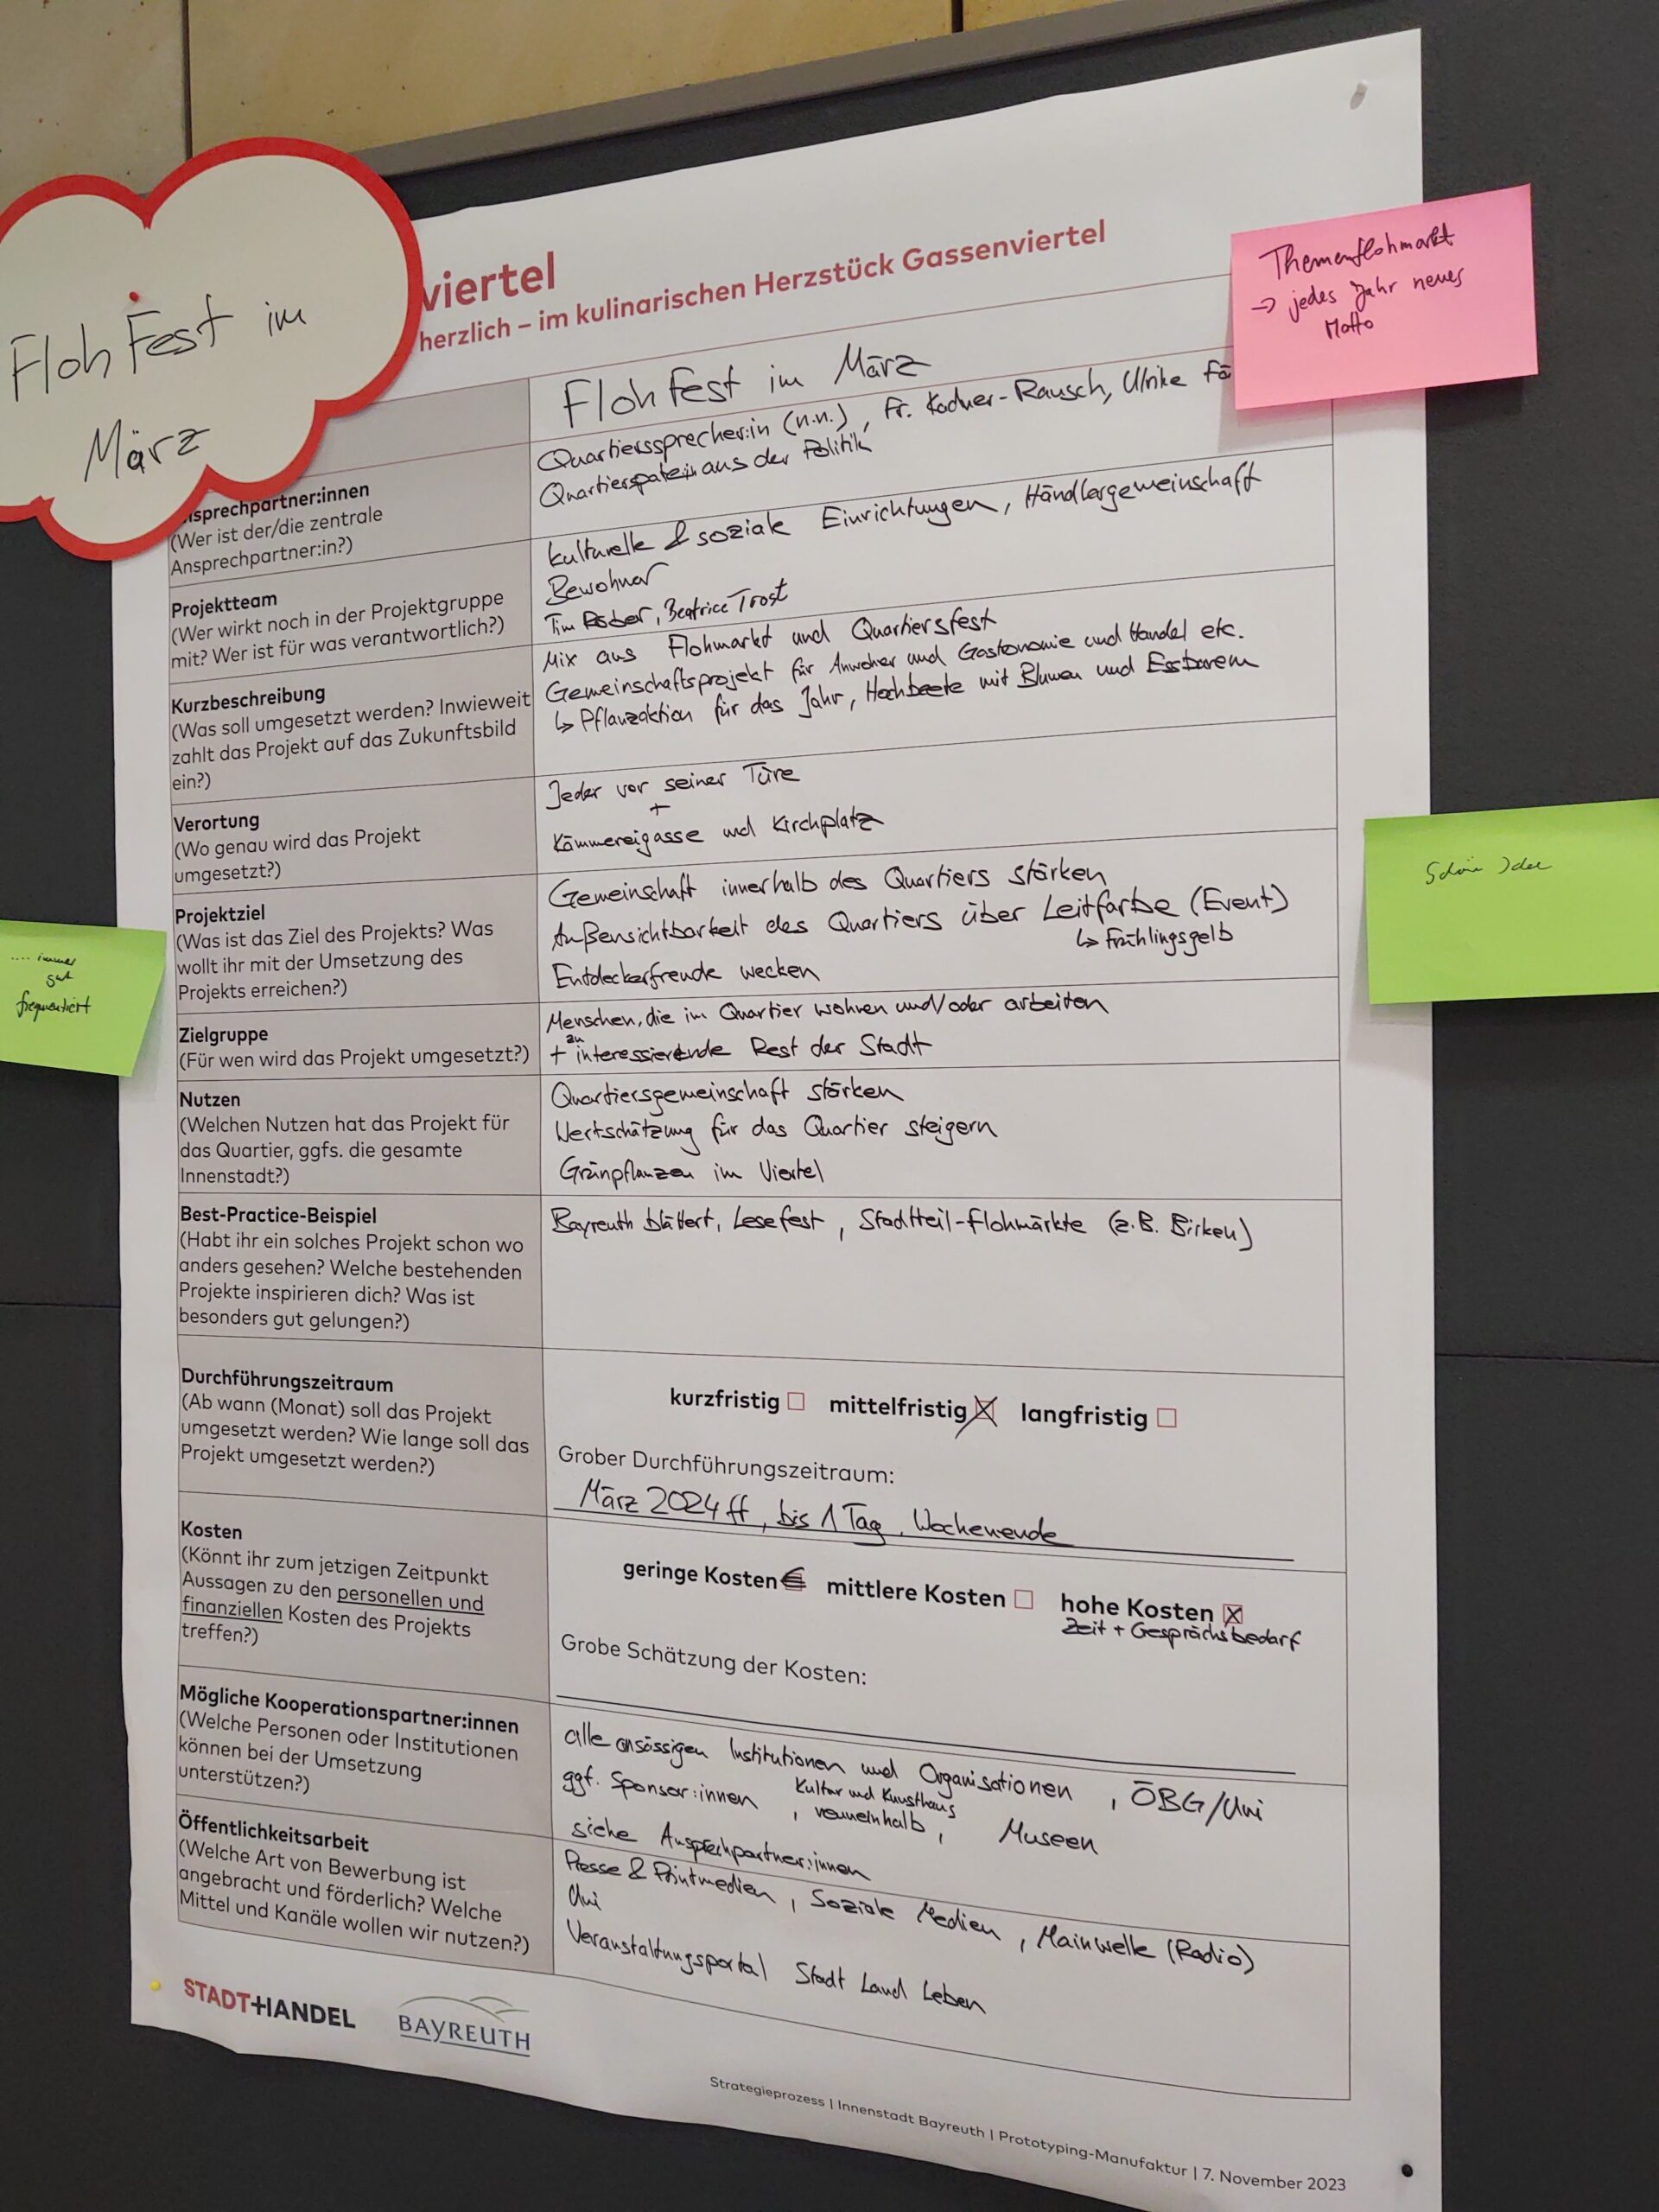 FlohFest im
März
viertel
herzlich – im kulinarischen Herzstück Gassenviertel
Themenflohmarkt
→ jedes Jahr neues
Motto
FlohFest im März
nsprechpartner:innen
(Wer ist der/die zentrale
Ansprechpartner:in?)
Quartierssprecher:in (n.n.), Fr. Kodner-Rausch, Ulrike Fä
Quartierspate:in aus der Politik
Projektteam
(Wer wirkt noch in der Projektgruppe
mit? Wer ist für was verantwortlich?)
kulturelle & soziale Einrichtungen, Händlergemeinschaft
Bewohner
Tim, Beatrice Trost
Kurzbeschreibung
(Was soll umgesetzt werden? Inwieweit
zahlt das Projekt auf das Zukunftsbild
ein?)
Mix aus Flohmarkt und Quartiersfest
Gemeinschaftsprojekt für Anwohner und Gastronomie und Handel etc.
↳ Pflanzaktion für das Jahr, Hochbeete mit Blumen und Essbarem
Verortung
(Wo genau wird das Projekt
umgesetzt?)
Jeder vor seiner Türe
+
Kämmereigasse und Kirchplatz
Projektziel
(Was ist das Ziel des Projekts? Was
wollt ihr mit der Umsetzung des
Projekts erreichen?)
Gemeinschaft innerhalb des Quartiers stärken
Außensichtbarkeit des Quartiers über Leitfarbe (Event)
↳ Frühlingsgelb
Entdeckerfreude wecken
Schöne Idee
.... immer
gut
frequentiert
Zielgruppe
(Für wen wird das Projekt umgesetzt?)
Menschen, die im Quartier wohnen und/oder arbeiten
zu
+ interessierende Rest der Stadt
Nutzen
(Welchen Nutzen hat das Projekt für
das Quartier, ggfs. die gesamte
Innenstadt?)
Quartiersgemeinschaft stärken
Wertschätzung für das Quartier steigern
Grünpflanzen im Viertel
Best-Practice-Beispiel
(Habt ihr ein solches Projekt schon wo
anders gesehen? Welche bestehenden
Projekte inspirieren dich? Was ist
besonders gut gelungen?)
Bayreuth blättert, Lesefest, Stadtteil-Flohmärkte (z.B. Birken)
Durchführungszeitraum
(Ab wann (Monat) soll das Projekt
umgesetzt werden? Wie lange soll das
Projekt umgesetzt werden?)
kurzfristig ☐ mittelfristig ☒ langfristig ☐
Grober Durchführungszeitraum:
März 2024 ff, bis 1 Tag, Wochenende
Kosten
(Könnt ihr zum jetzigen Zeitpunkt
Aussagen zu den personellen und
finanziellen Kosten des Projekts
treffen?)
geringe Kosten mittlere Kosten ☐ hohe Kosten ☒
Zeit + Gesprächsbedarf
Grobe Schätzung der Kosten:
Mögliche Kooperationspartner:innen
(Welche Personen oder Institutionen
können bei der Umsetzung
unterstützen?)
alle ansässigen Institutionen und Organisationen, ÖBG/Uni
ggf. Sponsor:innen, Kultur und Kunsthaus
neuneinhalb, Museen
siehe Ansprechpartner:innen
Öffentlichkeitsarbeit
(Welche Art von Bewerbung ist
angebracht und förderlich? Welche
Mittel und Kanäle wollen wir nutzen?)
Presse & Printmedien, Soziale Medien, Mainwelle (Radio)
Uni
Veranstaltungsportal Stadt Land Leben
STADT+HANDEL
BAYREUTH
Strategieprozess | Innenstadt Bayreuth | Prototyping-Manufaktur | 7. November 2023